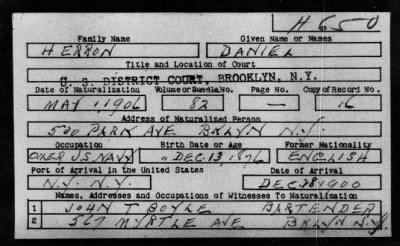 H 650
Family Name Given Name or Names
HERRON DANIEL
Title and Location of Court
U. S. DISTRICT COURT, BROOKLYN, N.Y.
Date of Naturalization Volume or Bundle No. Page No. Copy of Record No.
MAY 1, 1906 82 — 16
Address of Naturalized Person
500 PARK AVE BKLYN N.Y.
Occupation Birth Date or Age Former Nationality
OILER U.S. NAVY DEC. 13, 1876 ENGLISH
Port of Arrival in the United States Date of Arrival
N.Y. N.Y. DEC. 1900
Names, Addresses and Occupations of Witnesses To Naturalization
1 JOHN T BOYLE BARTENDER
2 567 MYRTLE AVE BKLYN N.Y.